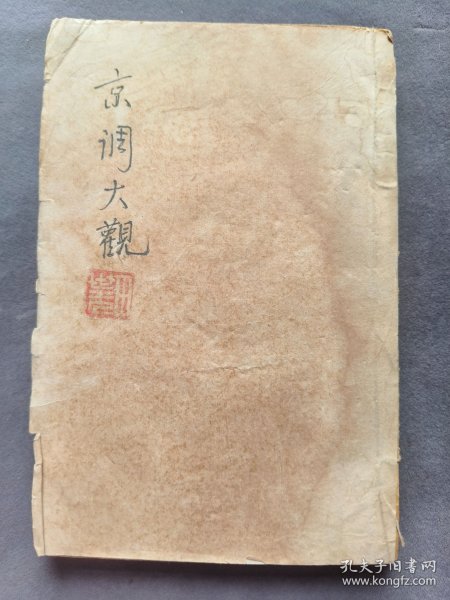 京调大觀
孔夫子旧书网
www.kongfz.com